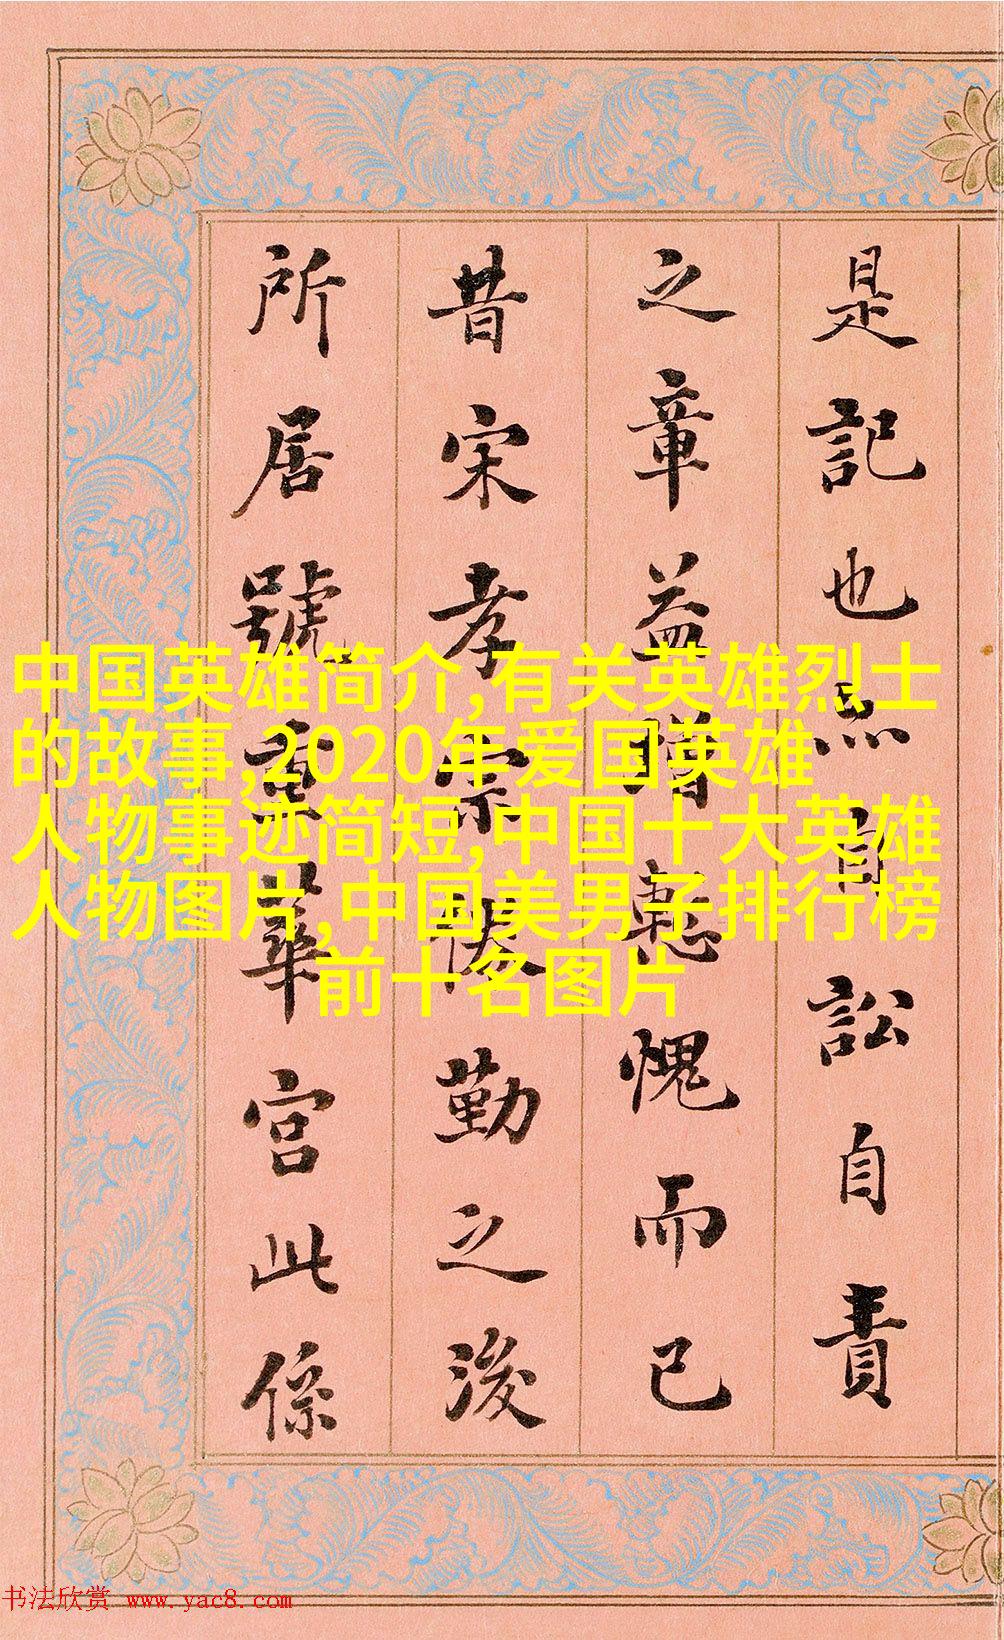 是記也自訟自責
之章益增慙愧而已
昔宋孝宗倦勤之後
所居號重華宮此係
中国英雄简介,有关英雄烈士
的故事,2020年爱国英雄
人物事迹简短,中国十大英雄
人物图片,中国美男子排行榜
前十名图片
书法欣赏 www.yac8.com